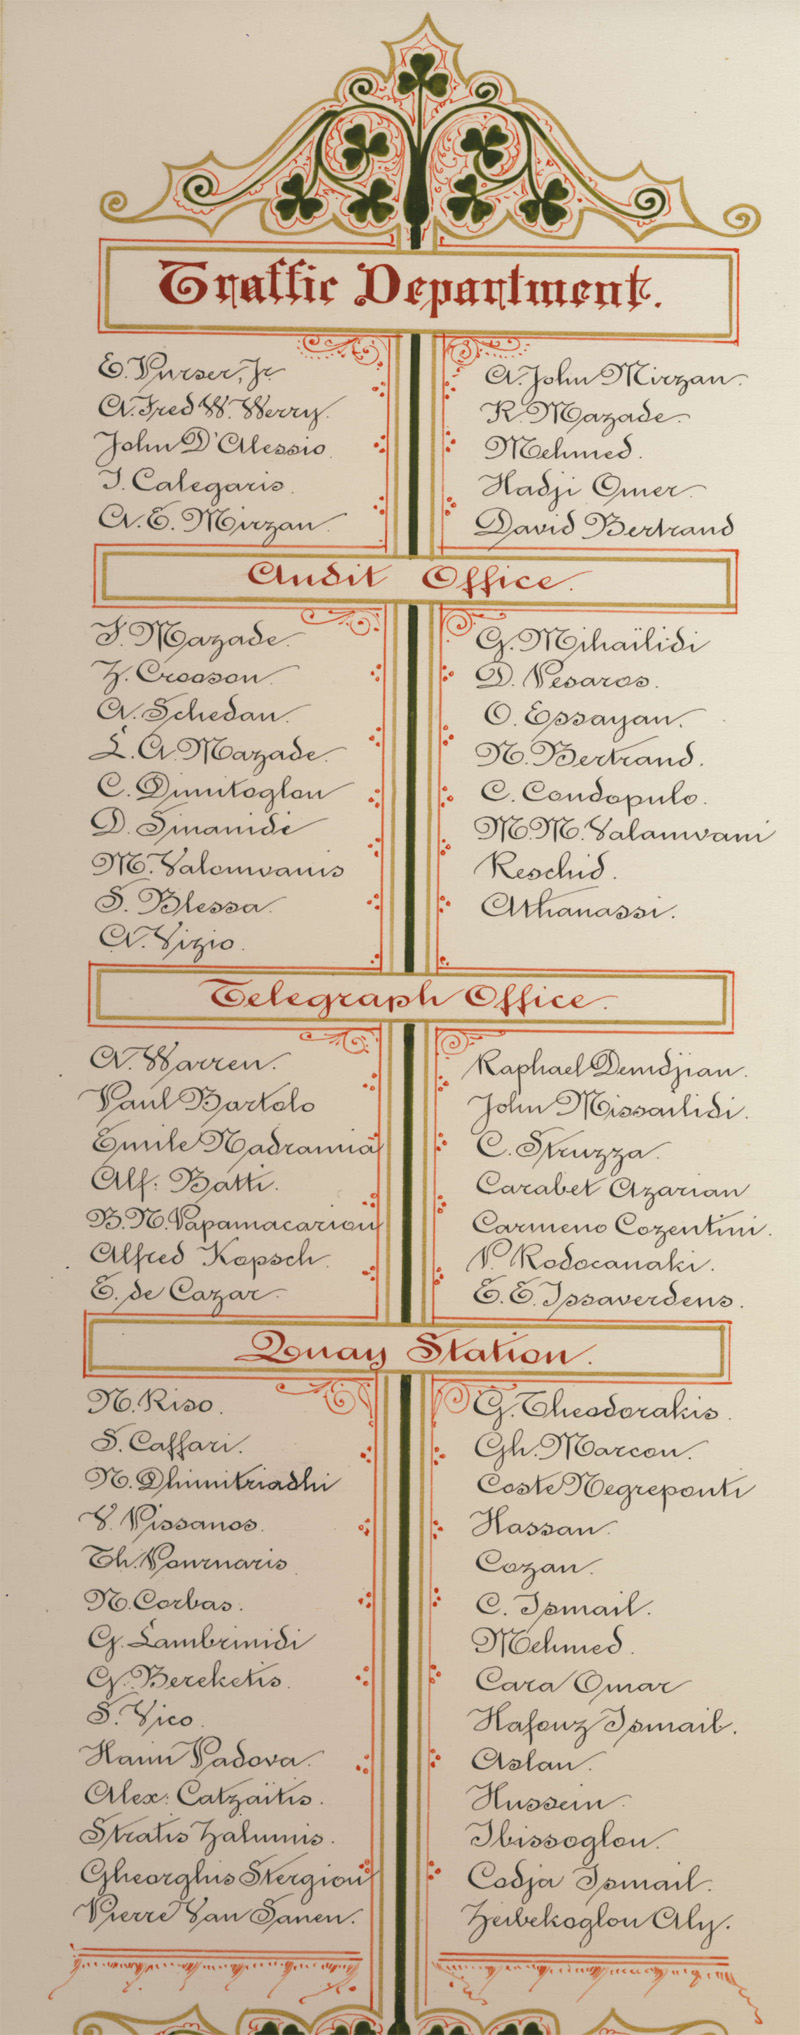 Traffic Department.
E. Purser, Jr
A. Fred W. Werry.
John D'Alessio.
J. Calegaris.
A. E. Mirzan.
A. John Mirzan.
R. Mazade.
Mehmed.
Hadji Omer.
David Bertrand
Audit Office.
F. Mazade.
Z. Crosson.
A. Schedan.
L. A. Mazade.
C. Dimitoglou
D. Sinanidi
M. Valomvanis
S. Blessa.
A. Vizio.
G. Mihaïlidi
D. Pesaros.
O. Essayan.
N. Bertrand.
C. Condopulo.
M. M. Valamvani
Reschid.
Athanassi.
Telegraph Office.
A. Warren.
Paul Bartolo
Emile Nadramia
Alf: Batti.
B. N. Papamacariou
Alfred Kopsch.
E. de Cazar.
Raphael Demdjian.
John Missailidi.
C. Struzza.
Carabet Azarian
Carmeno Cozentini.
P. Rodocanaki.
E. E. Issaverdens.
Quay Station.
N. Riso.
S. Caffari.
N. Dhimitriadhi
V. Pissanos.
Th. Pournaris
N. Corbas.
G. Lambrinidi
G. Bereketis.
S. Vico.
Haim Padova.
Alex: Catzaïtis.
Stratis Zalumis.
Gheorghis Stergiou
Pierre Van Sanen.
G. Theodorakis.
Gh. Marcou.
Coste Negreponti
Hassan.
Cozan.
C. Ismail.
Mehmed.
Cara Omar
Hafouz Ismail.
Aslan.
Hussein.
Ibissoglou.
Codja Ismail.
Zeibekoglou Aly.